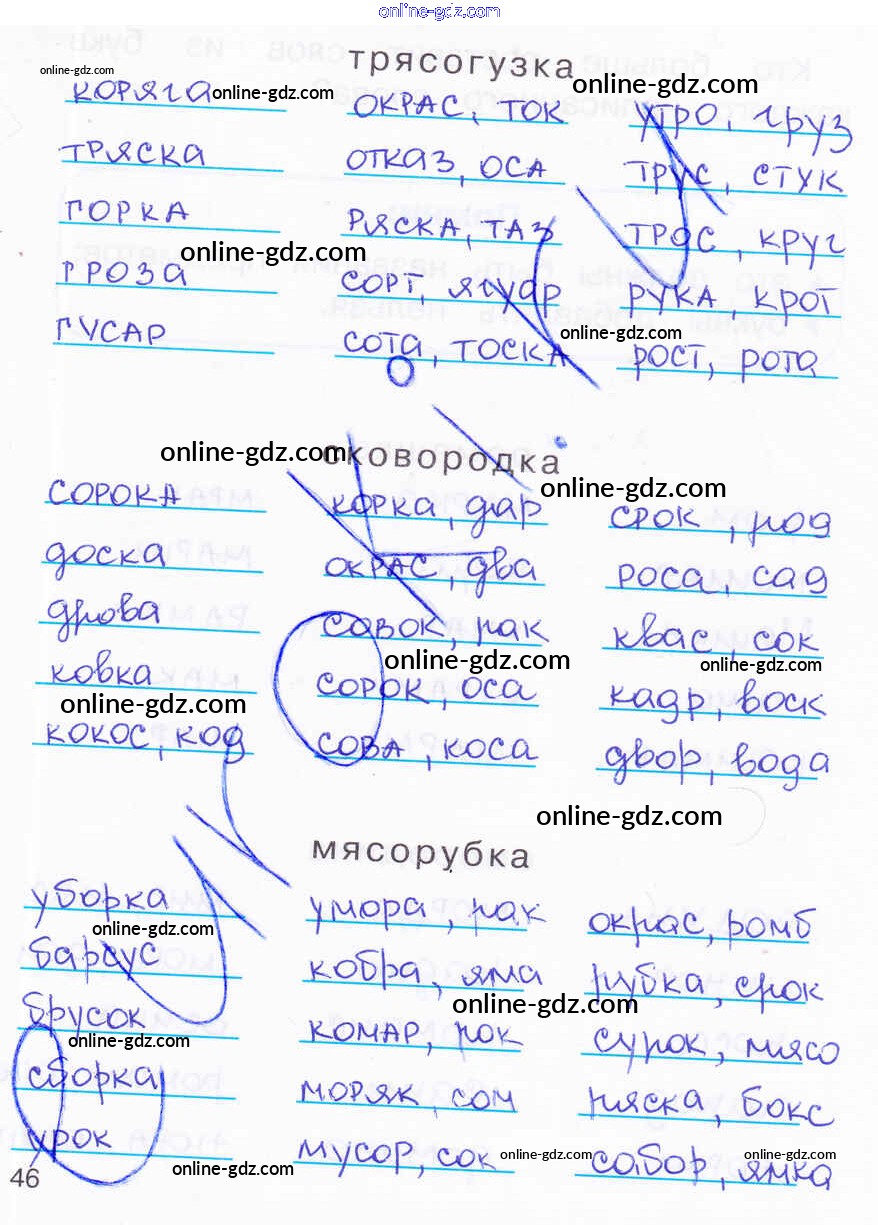 online-gdz.com
online-gdz.com
трясогузка
online-gdz.com
online-gdz.com
КОРЯГА ОКРАС, ТОК УТРО, ГРУЗ
ТРЯСКА ОТКАЗ, ОСА ТРУС, СТУК
ГОРКА РЯСКА, ТАЗ ТРОС, КРУГ
online-gdz.com
ГРОЗА СОРТ, ЯГУАР РУКА, КРОТ
online-gdz.com
ГУСАР СОТА, ТОСКА РОСТ, РОТА
online-gdz.com сковородка
online-gdz.com
СОРОКА КОРКА, дар СРОК, род
доска ОКРАС, два роса, сад
дрова СОВОК, рак квас, сок
online-gdz.com online-gdz.com
ковка СОРОК, оса кадр, воск
online-gdz.com
кокос, код СОВА, коса двор, вода
online-gdz.com
мясорубка
уборка умора, рак окрас, ромб
online-gdz.com
барсус кобра, яма рубка, срок
online-gdz.com
брусок комар, рок сурок, мясо
online-gdz.com
сборка моряк, сом ряска, бокс
урок мусор, сок собор, ямка
online-gdz.com online-gdz.com online-gdz.com
46